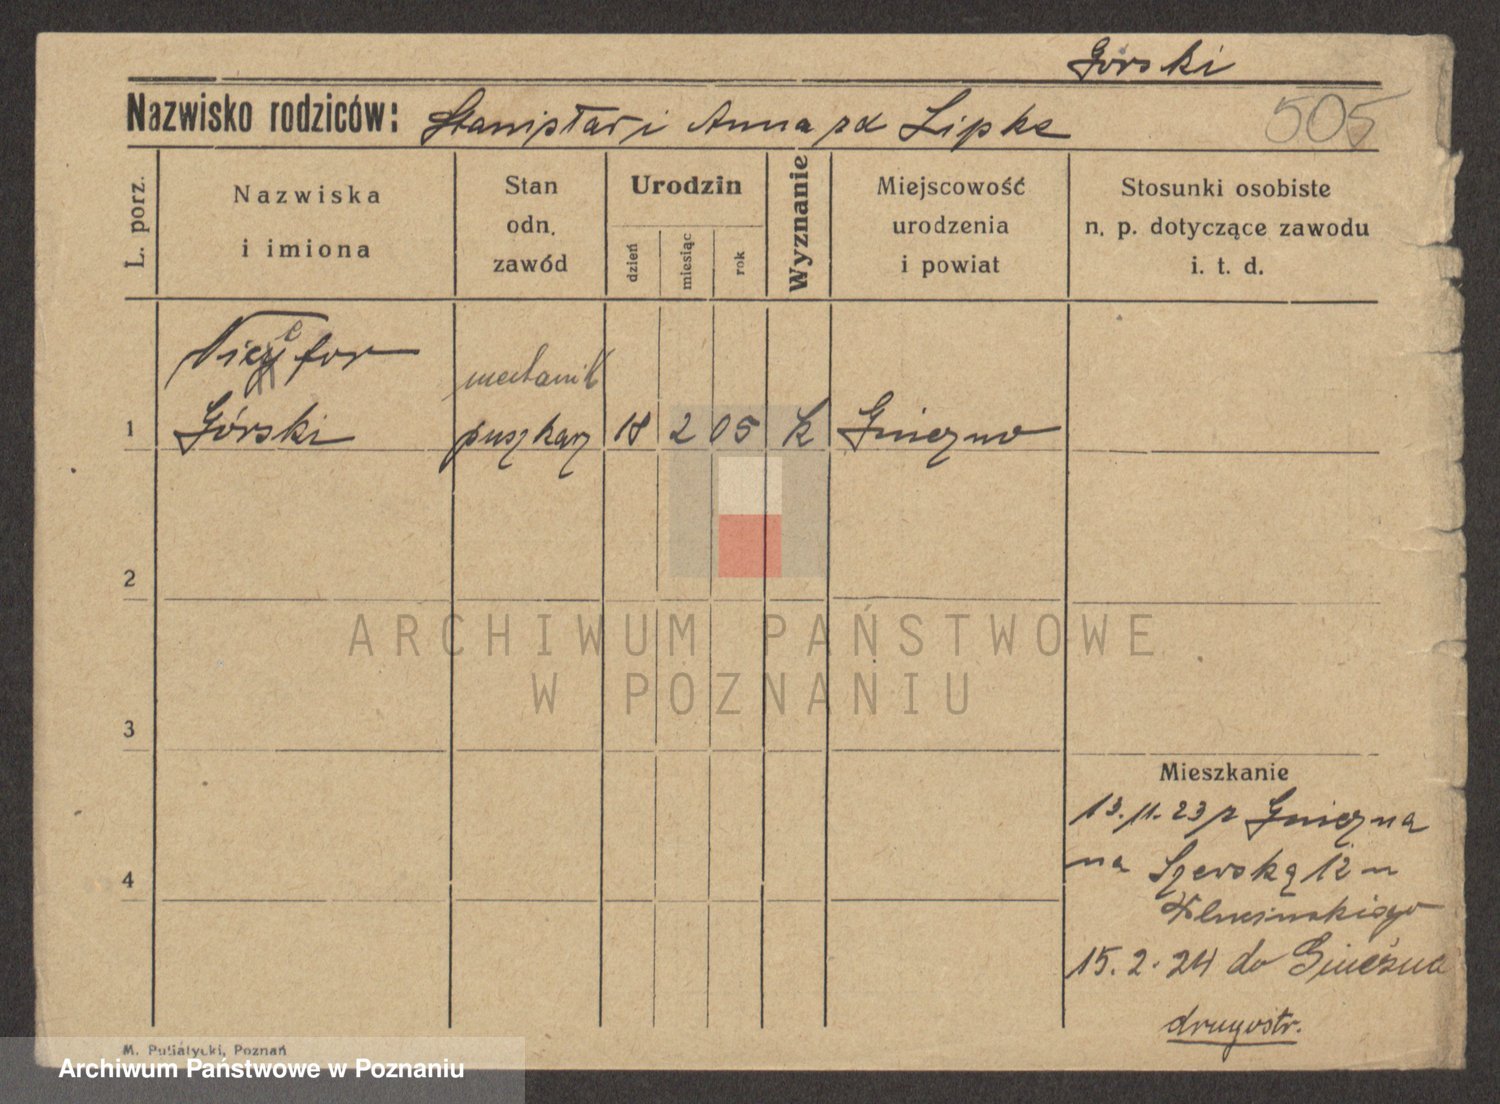 Górski
Nazwisko rodziców: Stanisław i Anna zd Lipke
505
L. porz.
Nazwiska
i imiona
Stan
odn.
zawód
Urodzin
dzień
miesiąc
rok
Wyznanie
Miejscowość
urodzenia
i powiat
Stosunki osobiste
n. p. dotyczące zawodu
i. t. d.
mechanik
1 Górski puszkarz 18 2 05 k Gniezno
2
3
4
ARCHIWUM PAŃSTWOWE
W POZNANIU
Mieszkanie
13. 11. 23 z Gniezna
na Szewską 12 u
15. 2. 24 do Gniezna
drugostr.
M. Putiatycki, Poznań
Archiwum Państwowe w Poznaniu